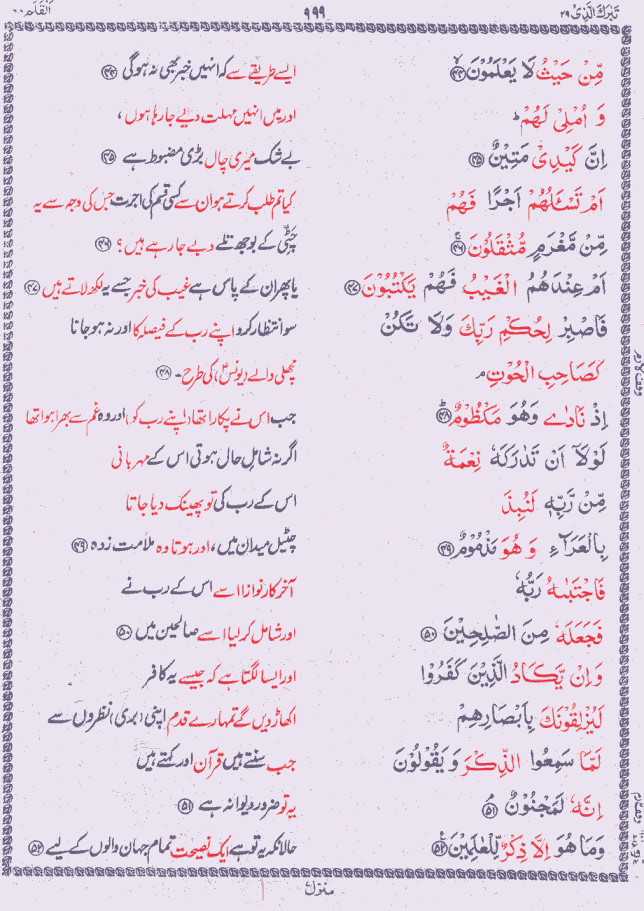 تَبٰرَكَ الَّذِیْ ٢٩
٩٩٩
اَلْقَلَم ٦٨
مِّنْ حَیْثُ لَا یَعْلَمُوْنَ ﴿٤٤﴾ ایسے طریقے سے کہ انہیں خبر بھی نہ ہوگی ﴿٤٤﴾
وَ اُمْلِیْ لَهُمْ ؕ اور میں انہیں مہلت دیے جارہا ہوں ،
اِنَّ كَیْدِیْ مَتِیْنٌ ﴿٤٥﴾ بے شک میری چال بڑی مضبوط ہے ﴿٤٥﴾
اَمْ تَسْـَٔلُهُمْ اَجْرًا فَهُمْ کیا تم طلب کرتے ہو ان سے کسی قسم کی اجرت جس کی وجہ سے یہ
مِّنْ مَّغْرَمٍ مُّثْقَلُوْنَ ﴿٤٦﴾ چٹّی کے بوجھ تلے دبے جارہے ہیں ؟ ﴿٤٦﴾
اَمْ عِنْدَهُمُ الْغَیْبُ فَهُمْ یَكْتُبُوْنَ ﴿٤٧﴾ یا پھر ان کے پاس ہے غیب کی خبر جسے یہ لکھ لاتے ہیں ﴿٤٧﴾
فَاصْبِرْ لِحُكْمِ رَبِّكَ وَلَا تَكُنْ سو انتظار کرو اپنے رب کے فیصلہ کا اور نہ ہوجانا
كَصَاحِبِ الْحُوْتِ ۘ مچھلی والے (یونس) کی طرح ۔ ﴿٤٨﴾
اِذْ نَادٰی وَهُوَ مَكْظُوْمٌ ﴿٤٨﴾ جب اس نے پکارا تھا (اپنے رب کو) اور وہ غم سے بھرا ہوا تھا
لَوْلَاۤ اَنْ تَدٰرَكَهٗ نِعْمَةٌ اگر نہ شاملِ حال ہوتی اس کے مہربانی
مِّنْ رَّبِّهٖ لَنُبِذَ اس کے رب کی تو پھینک دیا جاتا
بِالْعَرَآءِ وَ هُوَ مَذْمُوْمٌ ﴿٤٩﴾ چٹیل میدان میں ، اور ہوتا وہ ملامت زدہ ﴿٤٩﴾
فَاجْتَبٰىهُ رَبُّهٗ آخر کار نوازا اسے اس کے رب نے
فَجَعَلَهٗ مِنَ الصّٰلِحِیْنَ ﴿٥٠﴾ اور شامل کر لیا اسے صالحین میں ﴿٥٠﴾
وَ اِنْ یَّكَادُ الَّذِیْنَ كَفَرُوْا اور ایسا لگتا ہے کہ جیسے یہ کافر
لَیُزْلِقُوْنَكَ بِاَبْصَارِهِمْ اکھاڑ دیں گے تمہارے قدم اپنی (بری) نظروں سے
لَمَّا سَمِعُوا الذِّكْرَ وَ یَقُوْلُوْنَ جب سنتے ہیں قرآن اور کہتے ہیں
اِنَّهٗ لَمَجْنُوْنٌ ﴿٥١﴾ یہ تو ضرور دیوانہ ہے ﴿٥١﴾
وَمَا هُوَ اِلَّا ذِكْرٌ لِّلْعٰلَمِیْنَ ﴿٥٢﴾ حالانکہ یہ تو ہے ایک نصیحت تمام جہان والوں کے لیے ﴿٥٢﴾
وقف لازم
منزل